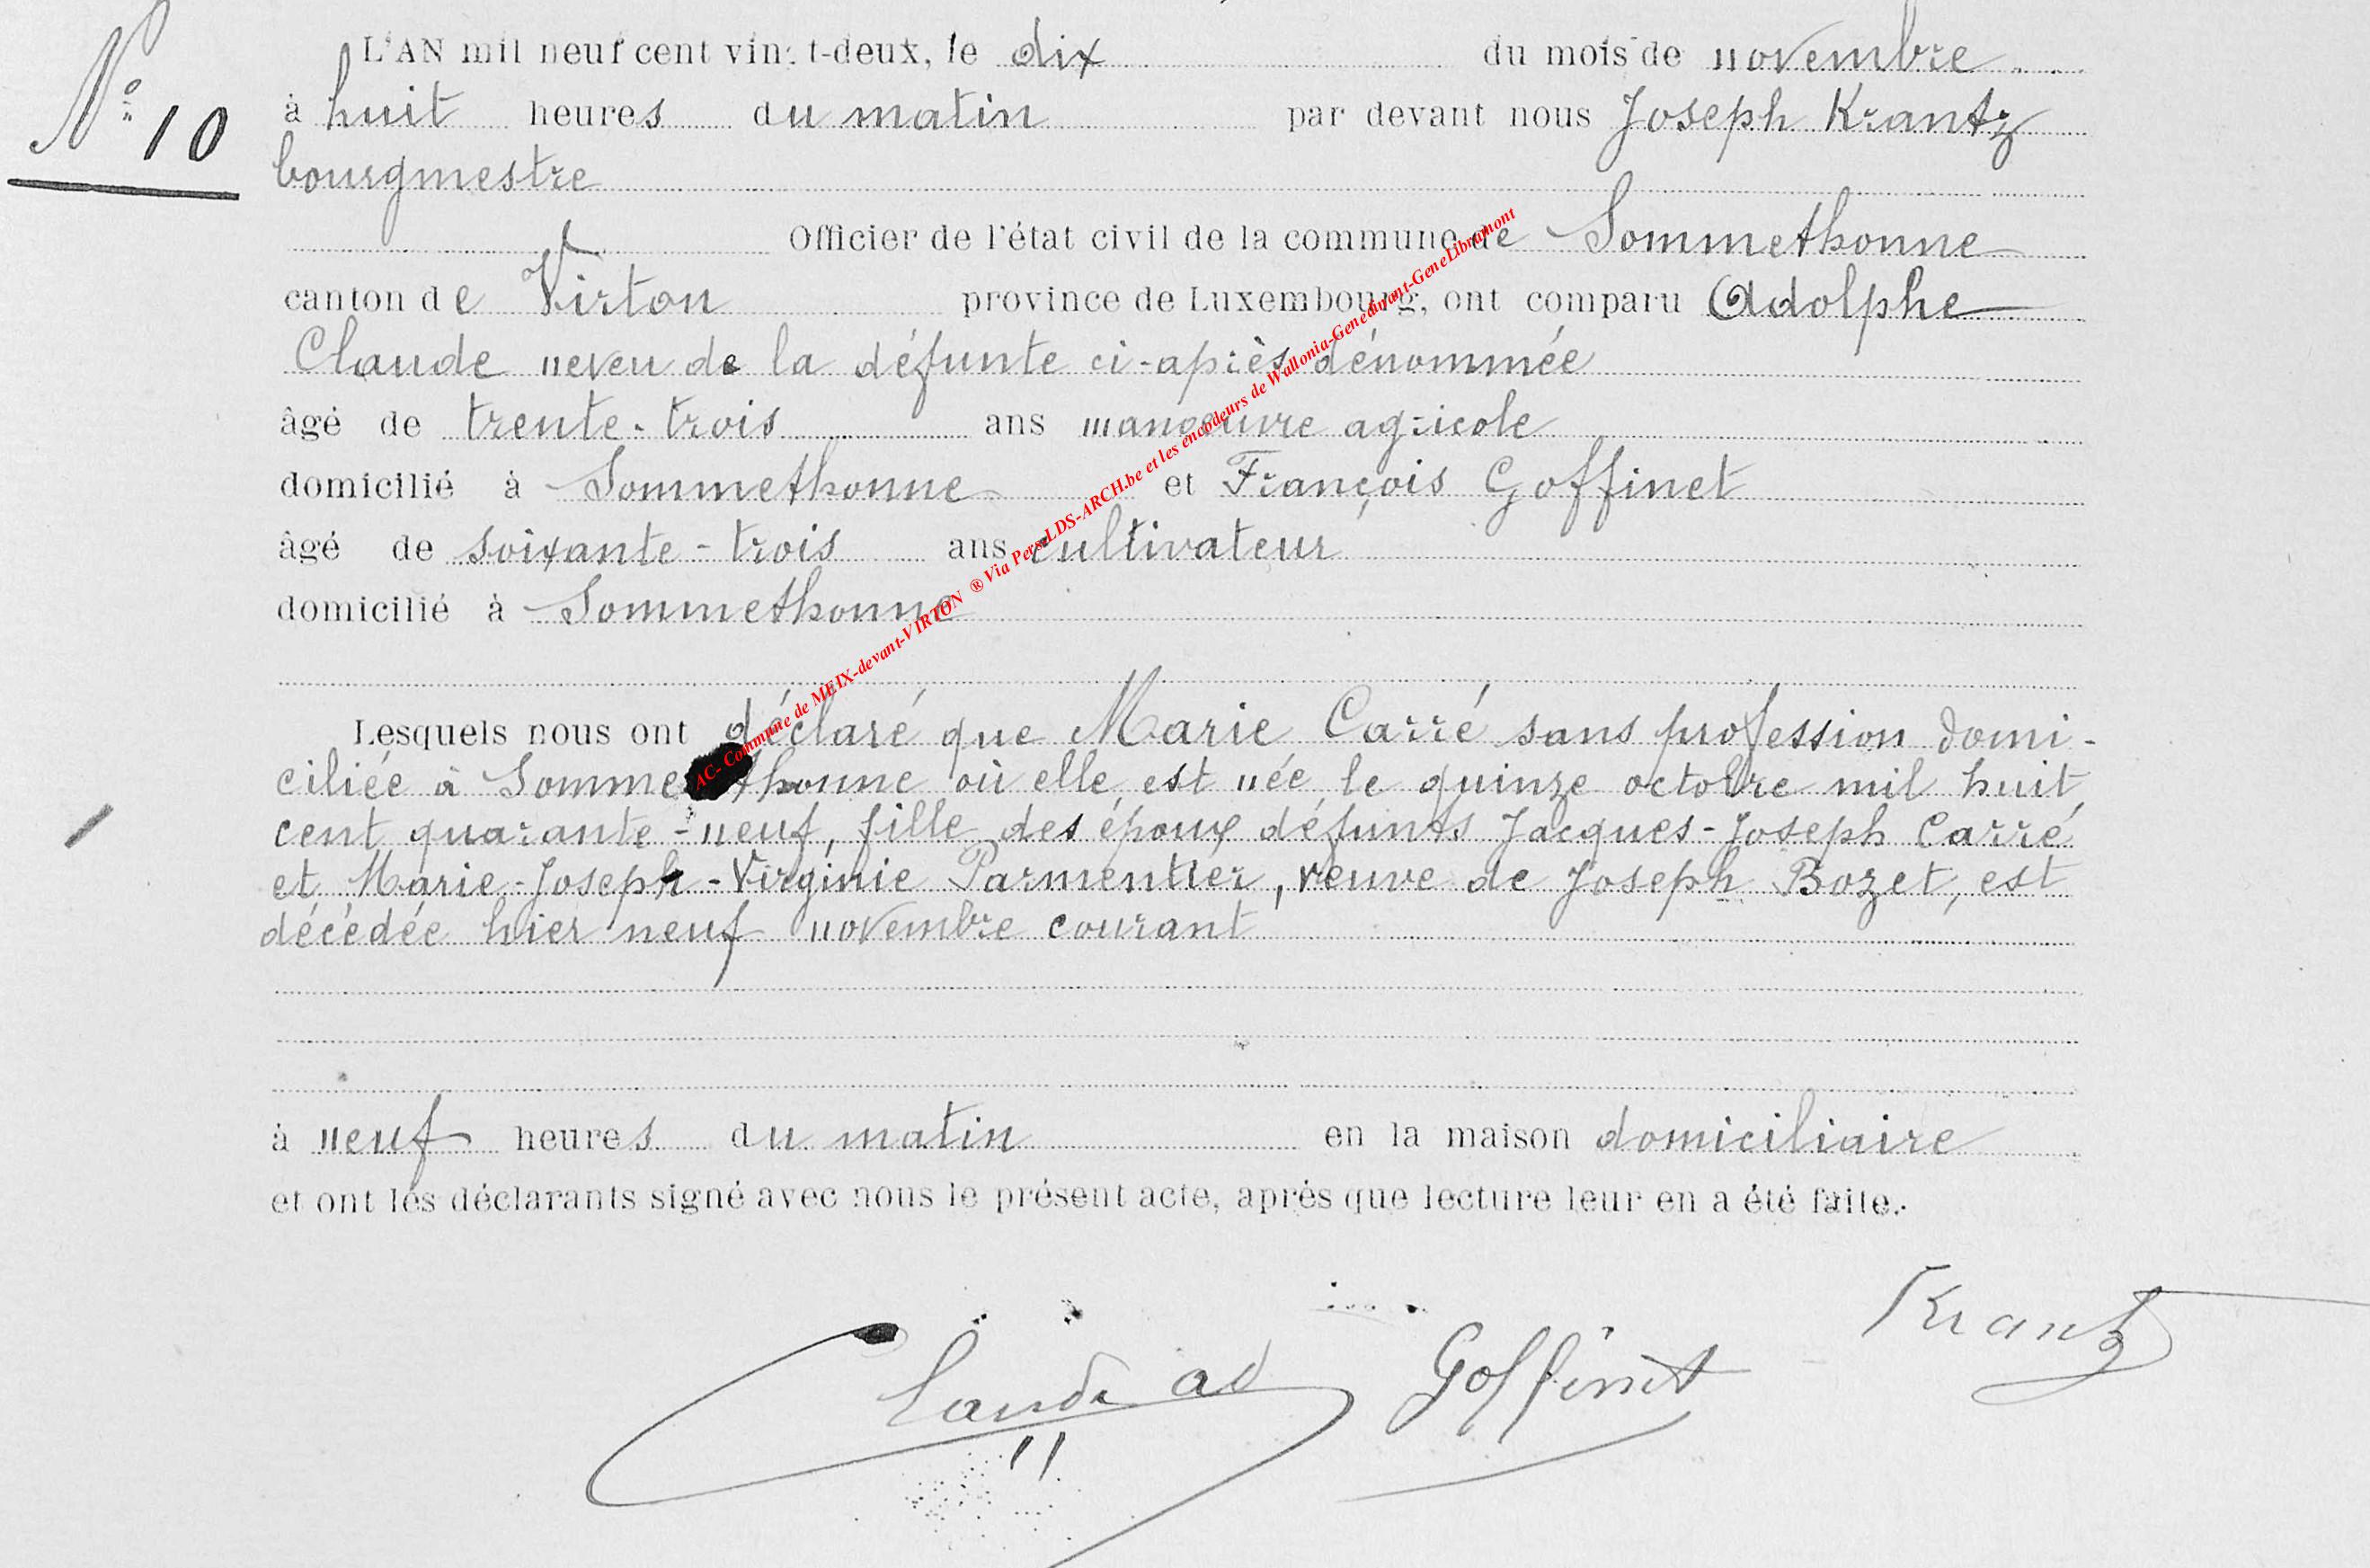 N° 10
L'AN mil neuf cent vingt-deux, le dix du mois de novembre
à huit heures du matin par devant nous Joseph Krantz
bourgmestre
Officier de l'état civil de la commune de Sommethonne
canton de Virton province de Luxembourg, ont comparu Adolphe
Claude neveu de la défunte ci-après dénommée
âgé de trente-trois ans manoeuvre agricole
domicilié à Sommethonne et François Goffinet
âgé de soixante-trois ans cultivateur
domicilié à Sommethonne
Lesquels nous ont déclaré que Marie Carré sans profession domi-
ciliée à Sommethonne où elle est née le quinze octobre mil huit
cent quarante-neuf, fille des époux défunts Jacques-Joseph Carré
et Marie-Joseph-Virginie Parmentier, veuve de Joseph Bozet, est
décédée hier neuf novembre courant
à neuf heures du matin en la maison domiciliaire
et ont les déclarants signé avec nous le présent acte, après que lecture leur en a été faite.
Claude ad Goffinet Krantz
AC- Commune de MEIX-devant-VIRTON ® Via Pers.LDS-ARCH.be et les encodeurs de Wallonia-Genedinant-GeneLibramont